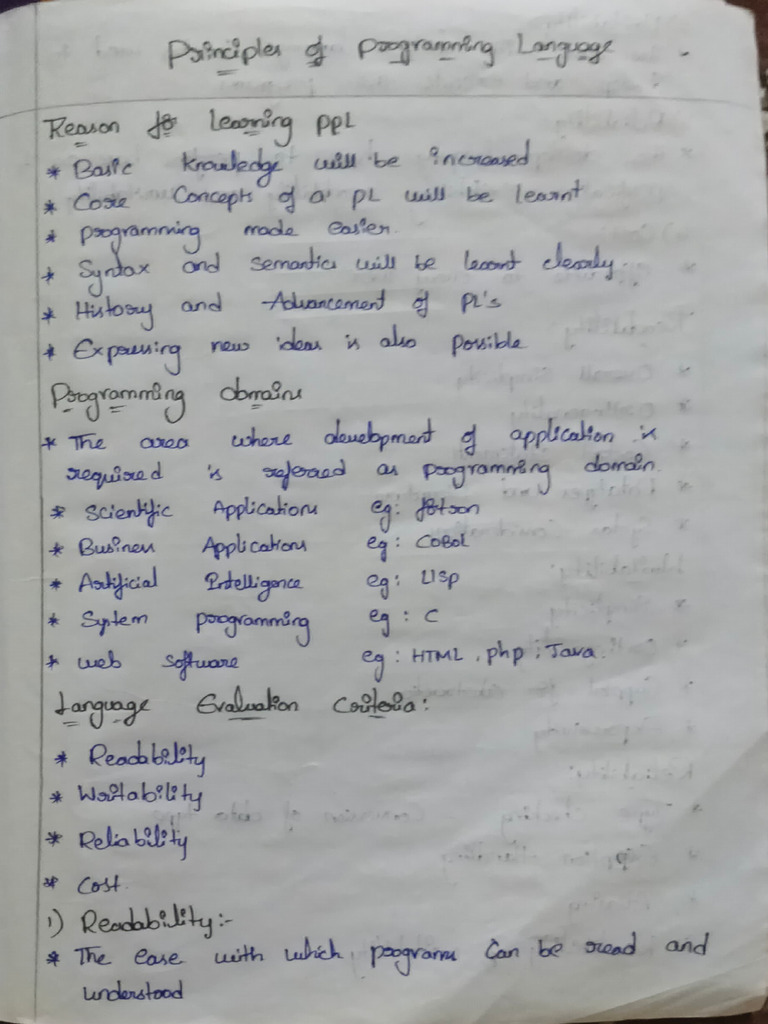 Principles of Programming Language
Reason for learning PPL
* Basic knowledge will be increased
* Core Concepts of a PL will be learnt
* programming made easier.
* Syntax and semantics will be learnt clearly.
* History and Advancement of PL's
* Expressing new ideas is also possible
Programming domains
* The area where development of application is
required is referred as programming domain.
* Scientific Applications eg:
* Business Applications eg: COBOL
* Artificial Intelligence eg: LISP
* System programming eg: C
* web software eg: HTML, php, Java.
Language Evaluation Criteria:
* Readability
* Writability
* Reliability
* Cost.
1) Readability:-
* The ease with which programs can be read and
understood